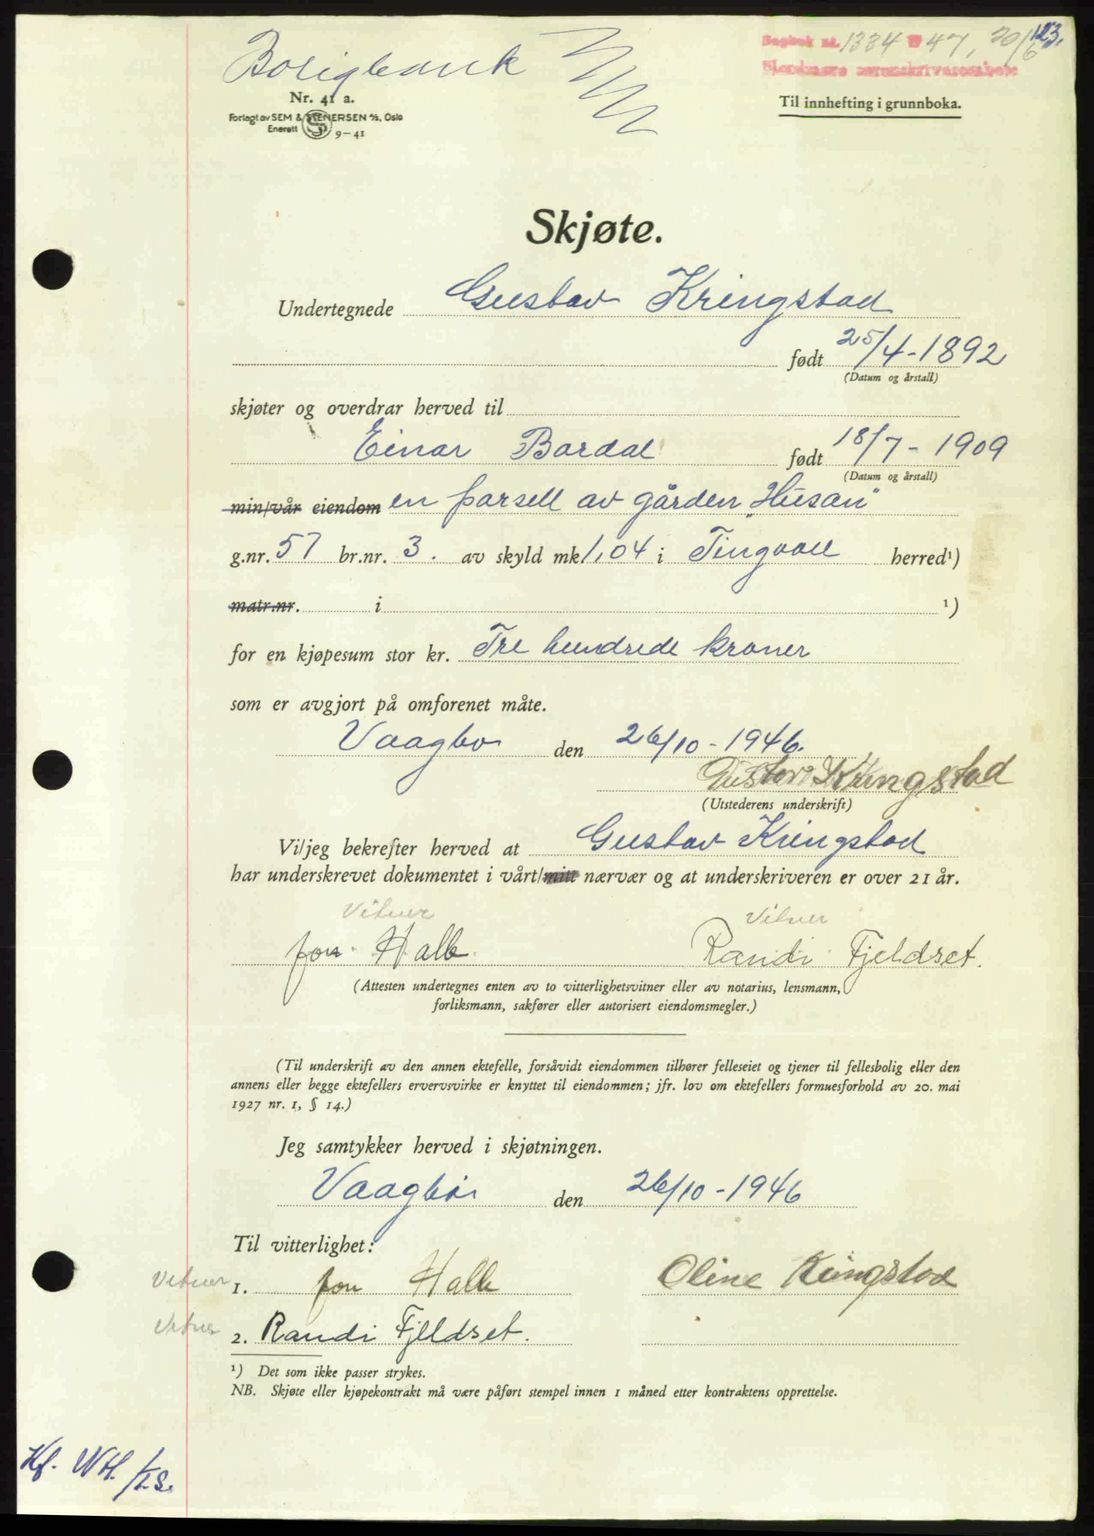 Boligbank
Dagbok nr. 1334 1947, 20/6 123.
Nordmøre sorenskriverembete
Nr. 41 a.
Forlagt av SEM & STENERSEN A/S, Oslo
Enerett 9-41
Til innhefting i grunnboka.
Skjøte.
Undertegnede Gustav Kringstad
født 25/4-1892
(Datum og årstall)
skjøter og overdrar herved til
Einar Bardal født 18/7-1909
(Datum og årstall)
min/vår eiendom en parsell av gården „Husan"
g.nr. 57 br.nr. 3. av skyld mk 1,04 i Tingvoll herred¹)
matr.nr. i ¹)
for en kjøpesum stor kr. Tre hundrede kroner
som er avgjort på omforenet måte.
Vaagbø den 26/10-1946.
Gustav Kringstad
(Utstederens underskrift)
Vi/jeg bekrefter herved at Gustav Kringstad
har underskrevet dokumentet i vårt/mitt nærvær og at underskriveren er over 21 år.
Vitner Vitner
Jon Halle Randi Fjeldset.
(Attesten undertegnes enten av to vitterlighetsvitner eller av notarius, lensmann,
forliksmann, sakfører eller autorisert eiendomsmegler.)
(Til underskrift av den annen ektefelle, forsåvidt eiendommen tilhører felleseiet og tjener til fellesbolig eller den
annens eller begge ektefellers ervervsvirke er knyttet til eiendommen; jfr. lov om ektefellers formuesforhold av 20. mai
1927 nr. 1, § 14.)
Jeg samtykker herved i skjøtningen.
Vaagbø den 26/10-1946
Til vitterlighet:
Vitner 1. Jon Halle Oline Kringstad
Vitner 2. Randi Fjeldset.
¹) Det som ikke passer strykes.
NB. Skjøte eller kjøpekontrakt må være påført stempel innen 1 måned etter kontraktens opprettelse.
Kf. WH. /ES.